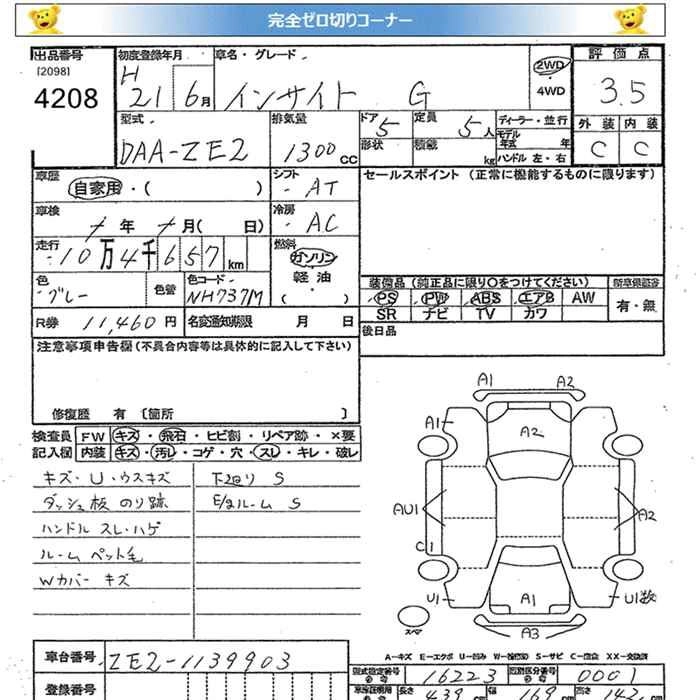 完全ゼロ切りコーナー
出品番号
[2098]
4208
初度登録年月
H
21 6月
車名・グレード
インサイト G
2WD
4WD
評価点
3.5
外装 内装
C C
型式
DAA-ZE2
排気量
1300cc
ドア 5
形状
定員 5人
積載 kg
ディーラー・並行
モデル
年式 年
ハンドル 左・右
車歴
自家用・( )
シフト
AT
車検
年 月( 日)
冷房
AC
走行
10万4千657km
燃料
ガソリン
軽油
( )
色
グレー
色替
色コード
NH737M
R券 11,460円
名変通知期限 月 日
セールスポイント (正常に機能するものに限ります)
装備品 (純正品に限り○をつけてください)
PS PW ABS エアB AW
SR ナビ TV カワ
新車保証書
有・無
後日品
注意事項申告欄(不具合内容等は具体的に記入して下さい)
修復歴 有 〔箇所 〕
検査員
記入欄
FW キズ・飛石・ヒビ割・リペア跡・×要
内装 キズ・汚レ・コゲ・穴・スレ・キレ・破レ
キズ・U・ウスキズ
ダッシュ板 のり跡
ハンドル スレ・ハゲ
ルーム ペット毛
Wカバー キズ
下廻り S
E/gルーム S
A1 A2
A1
A2
AU1
A2
C1
U1
A1
U1数
A3
スペア
A-キズ E-エクボ U-凹み W-波(修) S-サビ C-腐食 XX-交換済
車台番号 ZE2-1139903
登録番号
型式指定番号 16223
類別区分番号 0001
長さ 439 cm
幅 169 cm
高さ 142 cm